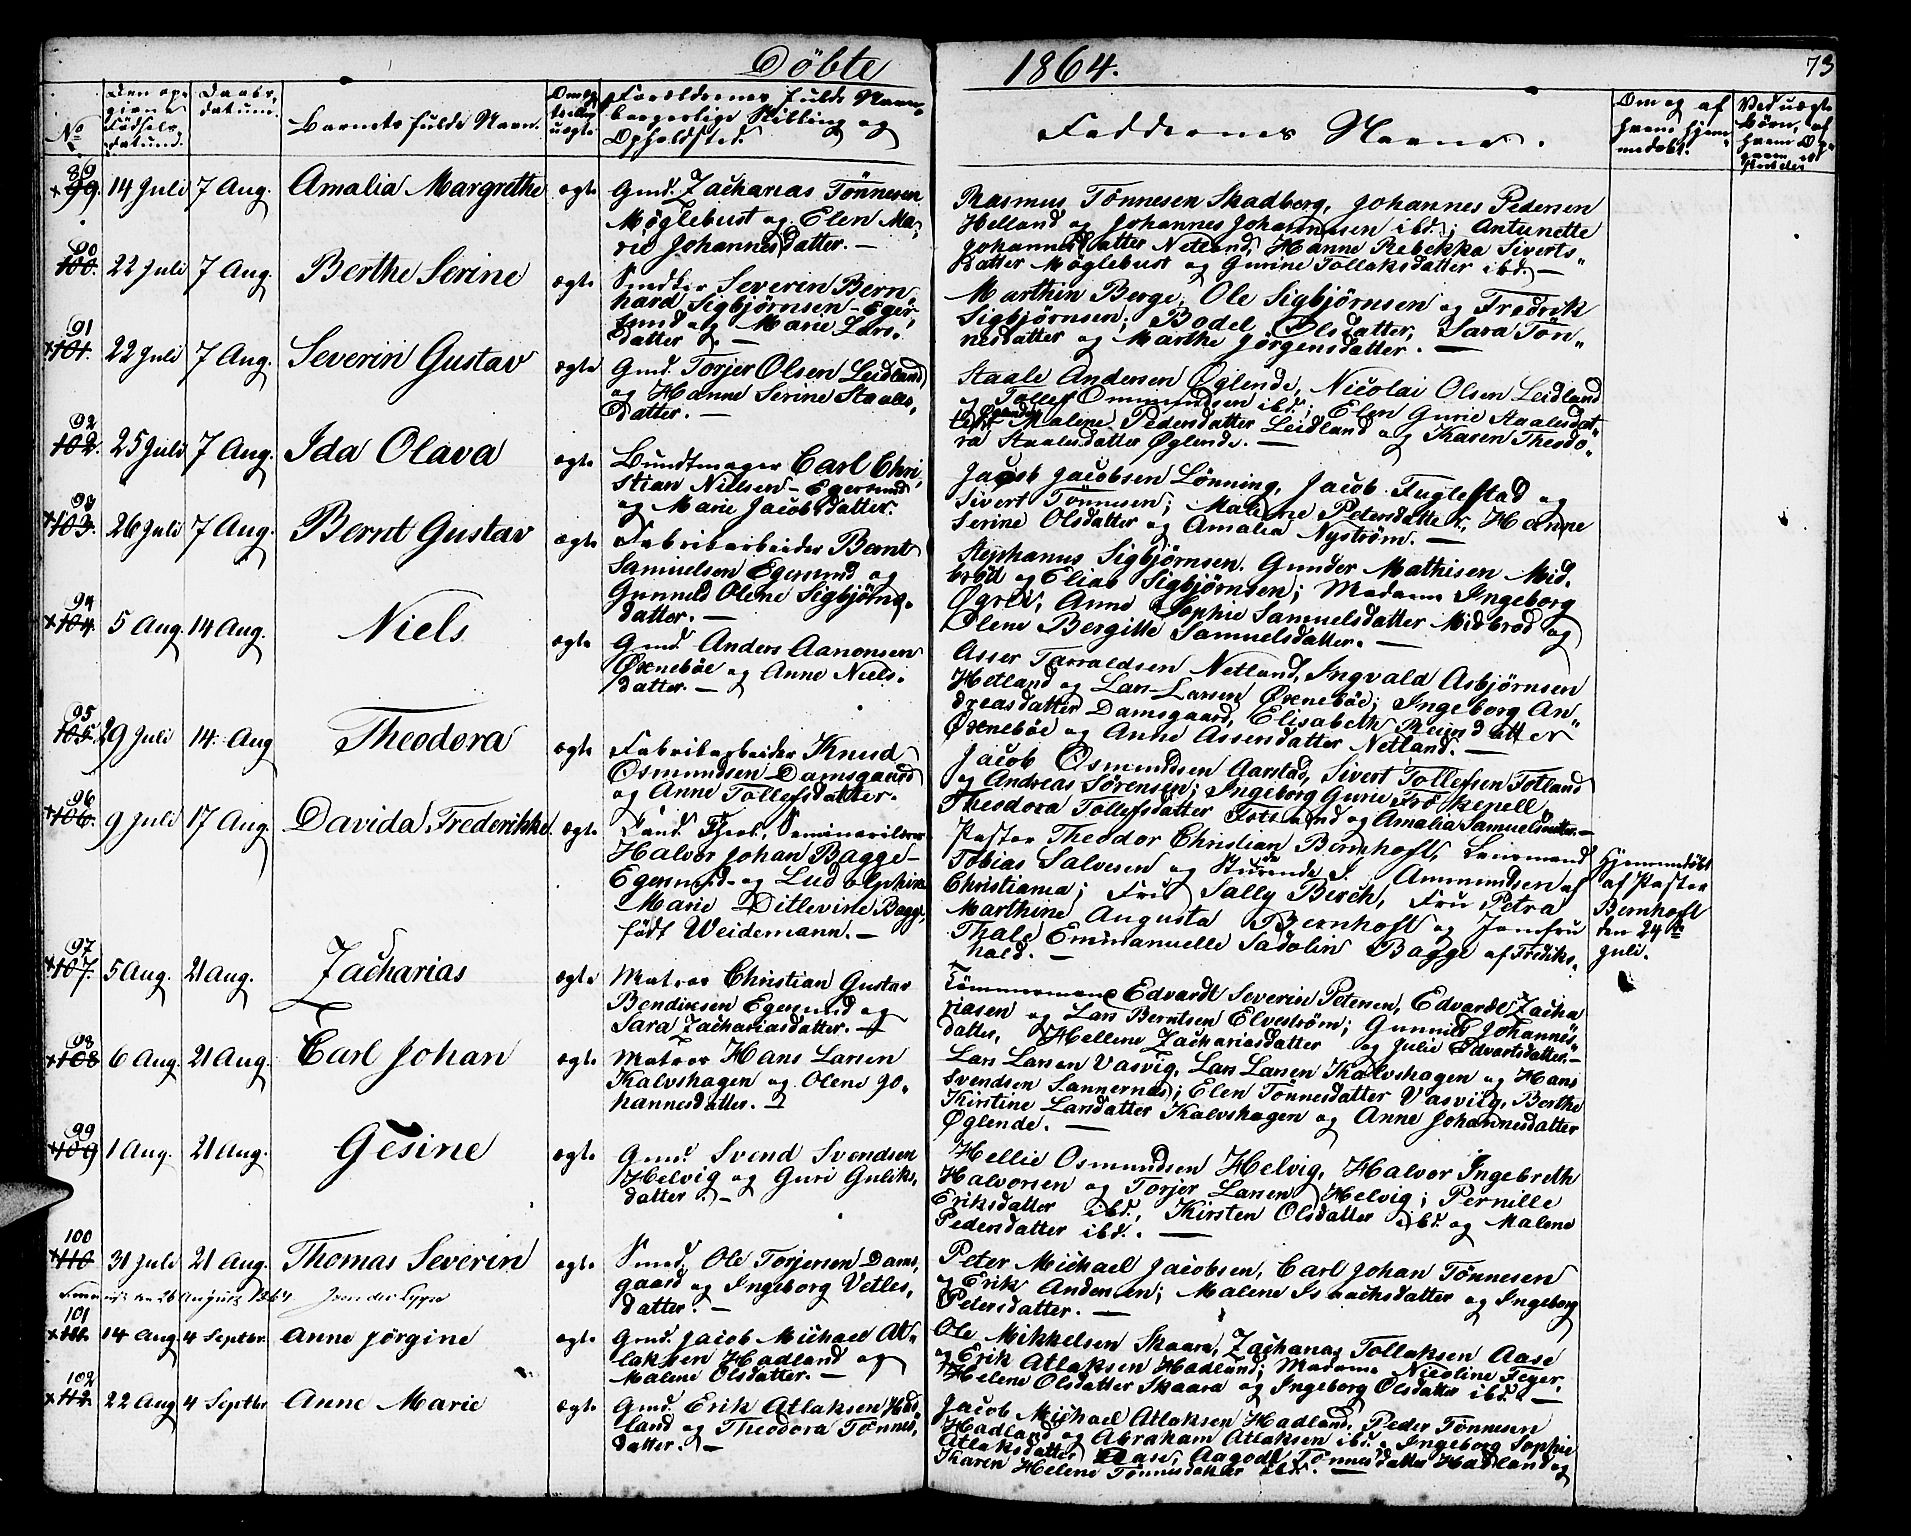 Döbte 1864. 73
No
Den op-
givne
Fødsels-
datum.
Daabs-
datum.
Barnets fulde Navn.
Om ægte
eller
uægte
Forældrenes fulde Navn,
borgerlige Stilling og
Opholdsted.
Faddernes Navne.
Om og af
hvem hjem-
medøbt.
Ved uægte
Børn, af
hvem Op-
gaven er
89
x 99 14 Juli 7 Aug. Amalia Margrethe ægte
Gmd. Zacharias Tönnesen
Møglebust og Elen Ma-
rie Johannesdatter. —
Rasmus Tönnesen Skadberg, Johannes Pedersen
Helland og Johannes Johannesen ibd.; Antonette
Johannesdatter Netland, Hanne Rebekka Siverts-
datter Møglebust og Gurine Tollaksdatter ibd. —
90
100. 22 Juli 7 Aug. Berthe Serine ægte
Snedker Severin Bern-
hard Sigbjørnsen - Eger-
sund og Marie Lars-
datter. —
Marthin Berge, Ole Sigbjörnsen og Fredrik
Sigbjørnsen; Bodel Olsdatter, Sara Tön-
nesdatter og Marthe Jörgensdatter. —
91
x 101. 22 Juli 7 Aug. Severin Gustav ægte
Gmd. Torjer Olsen Leidland
og Hanne Serine Staales-
datter. —
Staale Andersen Øglende, Nicolai Olsen Leidland
og Tollef Ommundsen ibd.; Elen Gurie Staalesdat-
ter Øglende, Malene Pedersdatter Leidland og Karen Theodo-
ra Staalesdatter Øglende. —
92
102. 25 Juli 7 Aug. Ida Olava ægte
Bundtmager Carl Chri-
stian Nielsen - Egersund
og Marie Jacobsdatter.
Jacob Jacobsen Lönning, Jacob Fuglestad og
Sivert Tönnesen; Malene Petersdatter, Hanne
Serine Olsdatter og Amalia Nyström. —
93
x 103. 26 Juli 7 Aug. Bernt Gustav ægte
Fabrikarbeider Bernt
Samuelsen Egersund og
Gunneld Olene Sigbjörns-
datter. —
Stephanus Sigbjørnsen, Gunder Mathisen Mid-
bröd og Elias Sigbjørnsen; Madame Ingeborg
Øgrei, Anne Sophie Samuelsdatter Midbrod og
Olene Bergitte Samuelsdatter. —
94
x 104. 5 Aug. 14 Aug. Niels ægte
Gmd. Anders Aanonsen
Øxnebøe og Anne Niels-
datter. —
Asser Tarraldsen Netland, Ingvald Asbjørnsen
Hetland og Lars Larsen Øxnebøe; Ingeborg An-
dreasdatter Damsgaard, Elisabeth Reiersdatter
Øxnebøe og Anne Assersdatter Netland. —
95
105. 29 Juli 14. Aug Theodora ægte
Fabrikarbeider Knud
Osmundsen Damsgaard
og Anne Tollefsdatter.
Jacob Osmundsen Aarstad, Sivert Tollefsen Totland
og Andreas Sörensen; Ingeborg Gurie Tröskepell,
Theodora Tollefsdatter Totland og Amalia Samuelsdatter. —
96
x 106. 9 Juli 17 Aug. Davida Frederikke ægte
Cand. Theol., Seminarilærer
Halvor Johan Bagge -
Egersund og Ludolphine
Marie Ditlevine Bagge,
født Weidemann. —
Pastor Theodor Christian Bernhoft, Lensmand
Tobias Salvesen og Studende S. Ammundsen af
Christiania; Fru Sally Berch, Fru Petra
Marthine Augusta Bernhoft og Jomfru
Thale Emmanuelle Sadolin Bagge af Fredriks-
hald. —
Hjemmedøbt
af Pastor
Bernhoft
den 24de
Juli.
97
x 107. 5 Aug. 21 Aug. Zacharias ægte
Matros Christian Gustav
Bendiksen Egersund og
Sara Zachariasdatter. —
Tömmermand Edvardt Severin Petersen, Edvardt Zacha
riasen og Lars Berntsen Elveström; Gunnild Johannes-
datter, Hellene Zachariasdatter og Julie Edvartsdatter. —
98
x 108 6 Aug. 21 Aug. Carl Johan ægte
Matros Hans Larsen
Kalvshagen og Olene Jo-
hannesdatter. —
Lars Larsen Vasvig, Lars Larsen Kalvshagen og Hans
Svendsen Sannernæs; Elen Tönnesdatter Vasvig, Berthe
Kirstine Larsdatter Kalvshagen og Anne Johannesdatter
Øglende. —
99
x 109 1 Aug. 21 Aug. Gesine ægte
Gmd. Svend Svendsen
Helvig og Guri Guliks-
datter. —
Hellie Osmundsen Helvig, Halvor Ingebreth
Halvorsen og Torjer Larsen Helvig; Pernille
Eriksdatter ibd., Kirsten Olsdatter ibd. og Malene
Pedersdatter ibd. —
100
x 110 31 Juli 21 Aug. Thomas Severin ægte
Smed, Ole Torjersen Dams-
gaard og Ingeborg Vetles-
datter. —
Peter Michael Jacobsen, Carl Johan Tönnesen
og Erik Andersen; Malene Isaachsdatter og Ingeborg
Petersdatter. —
den 26 August 1864
101
x 111. 14 Aug 4 Septbr. Anne Jörgine ægte
Gmd. Jacob Michael At-
laksen Hadland og
Malene Olsdatter. —
Ole Mikkelsen Skaara, Zacharias Tollaksen Aase
og Erik Atlaksen Hadland; Madame Nicoline Feyer,
Helene Olsdatter Skaara og Ingeborg Olsdatter ibd. —
102
x 112. 22 Aug 4 Septbr Anne Marie ægte
Gmd. Erik Atlaksen Had-
land og Theodora Tönnes-
datter. —
Jacob Michael Atlaksen Hadland, Peder Tönnesen
Hadland og Abraham Atlaksen ibd.; Ingeborg Sophie
Atlaksdatter Aase, Aagodt Tönnesdatter Hadland og
Karen Helene Tönnesdatter ibd. —